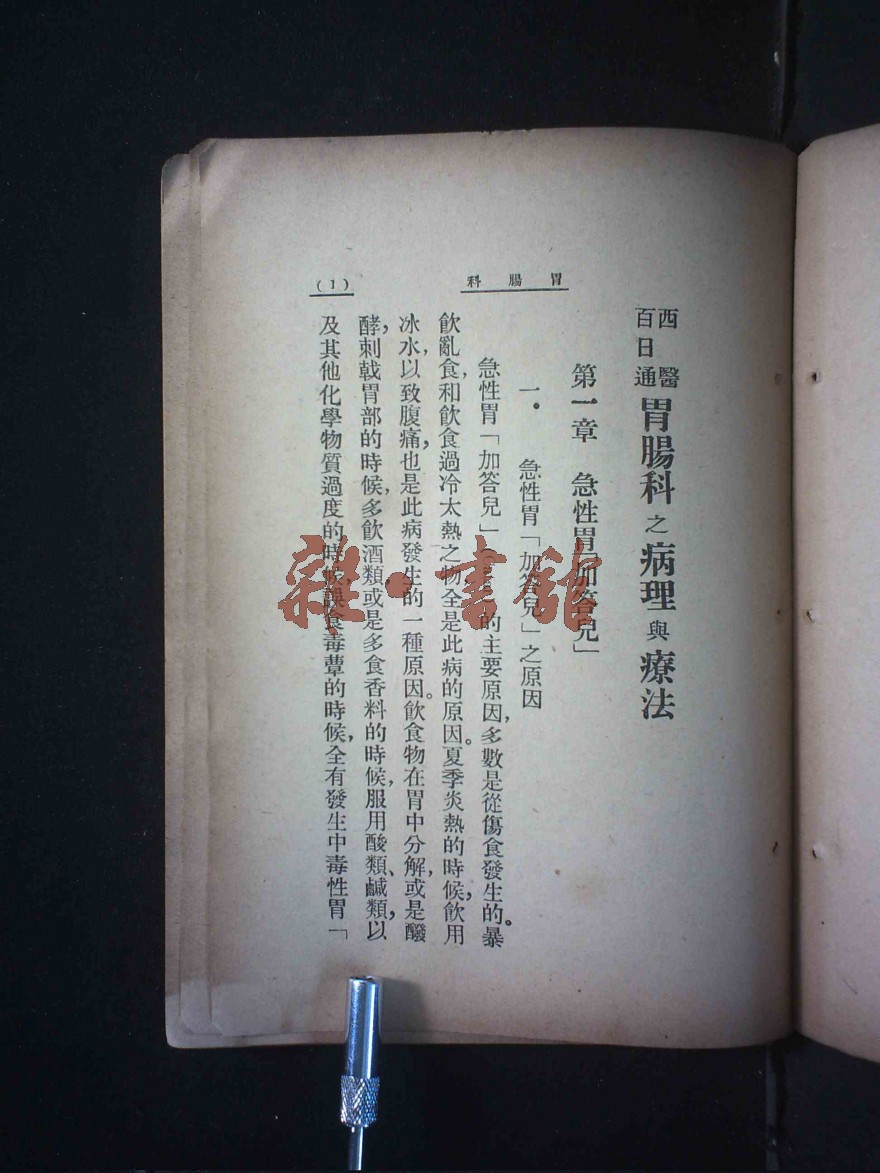 胃腸科
(1)
西醫
百日通
胃腸科之病理與療法
第一章　急性胃「加答兒」
一．　急性胃「加答兒」之原因
急性胃「加答兒」的主要原因，多數是從傷食發生的。暴
飲亂食，和飲食過冷太熱之物全是此病的原因。夏季炎熱的時候，飲用
冰水以致腹痛，也是此病發生的一種原因。飲食物在胃中分解，或是醱
酵，刺戟胃部的時候，多飲酒類，或是多食香料的時候，服用酸類、鹹類，以
及其他化學物質過度的時候，誤食毒蕈的時候，全有發生中毒性胃「
雜·書舘